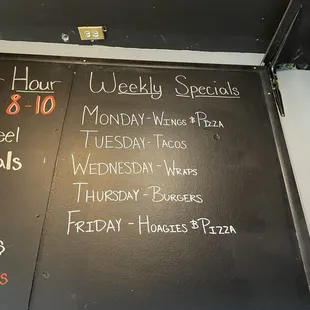 Hour
8-10
Weekly Specials
Monday - Wings & Pizza
Tuesday - Tacos
Wednesday - Wraps
Thursday - Burgers
Friday - Hoagies & Pizza